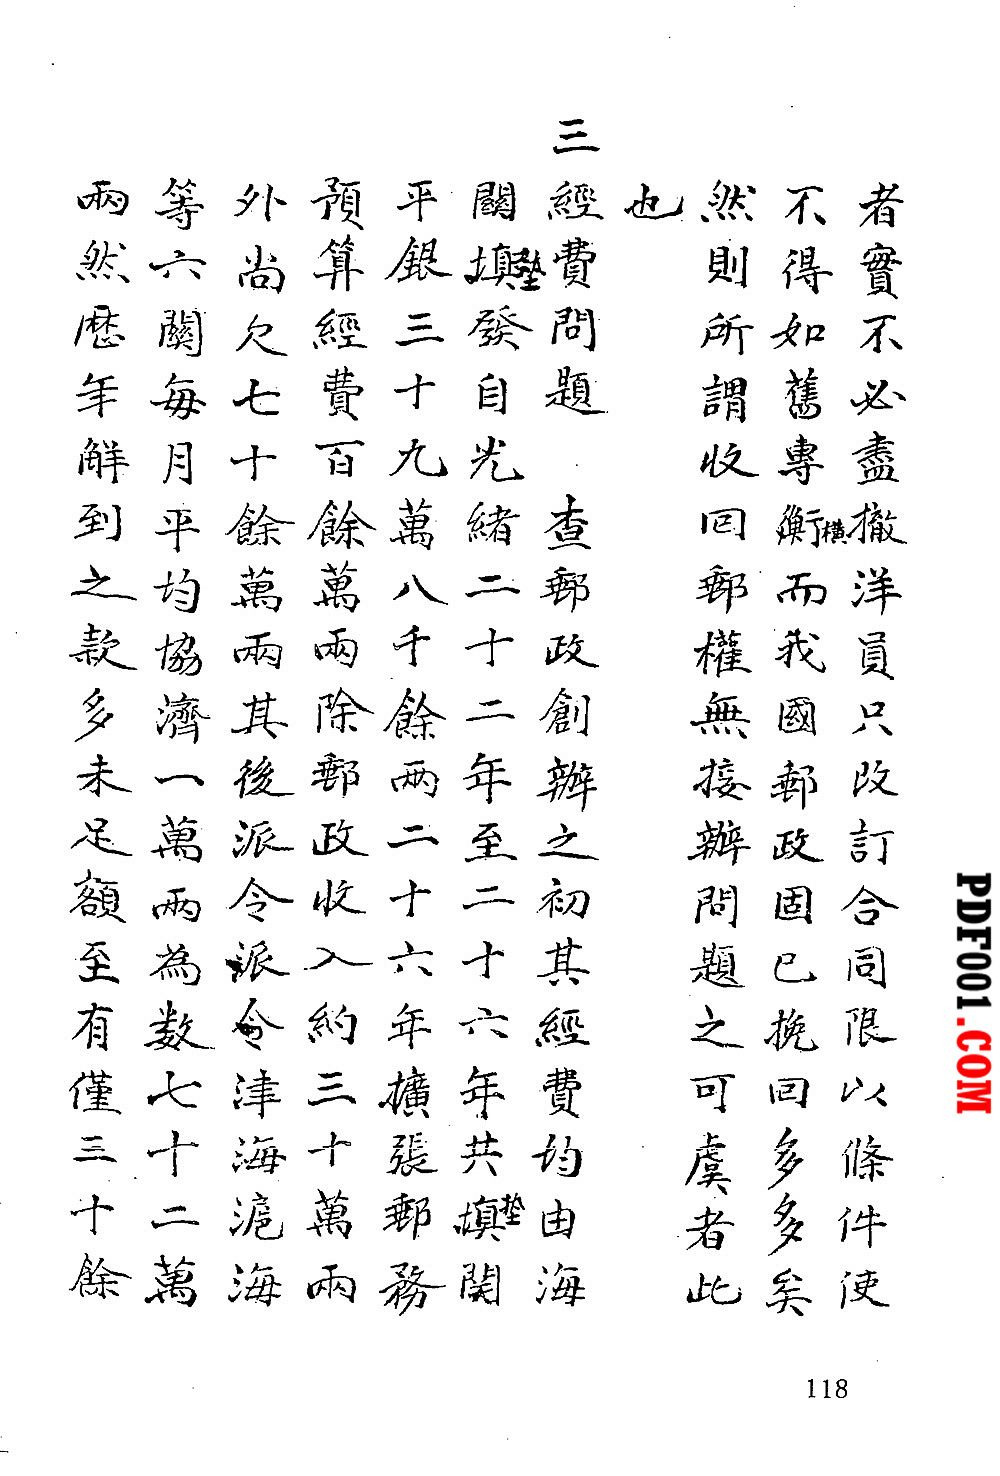 者實不必盡撤洋員只改訂合同限以條件使
不得如舊專衡橫而我國郵政固已挽回多多矣
然則所謂收回郵權無接辦問題之可虞者此
也
三
經費問題 查郵政創辦之初其經費均由海
關填墊發自光緒二十二年至二十六年共填墊関
平銀三十九萬八千餘两二十六年擴張郵務
預算經費百餘萬兩除郵政收入約三十萬兩
外尚欠七十餘萬兩其後派令派令津海滬海
等六關每月平均協濟一萬兩為数七十二萬
兩然歷年解到之款多未足額至有僅三十餘
118
PDF001.COM